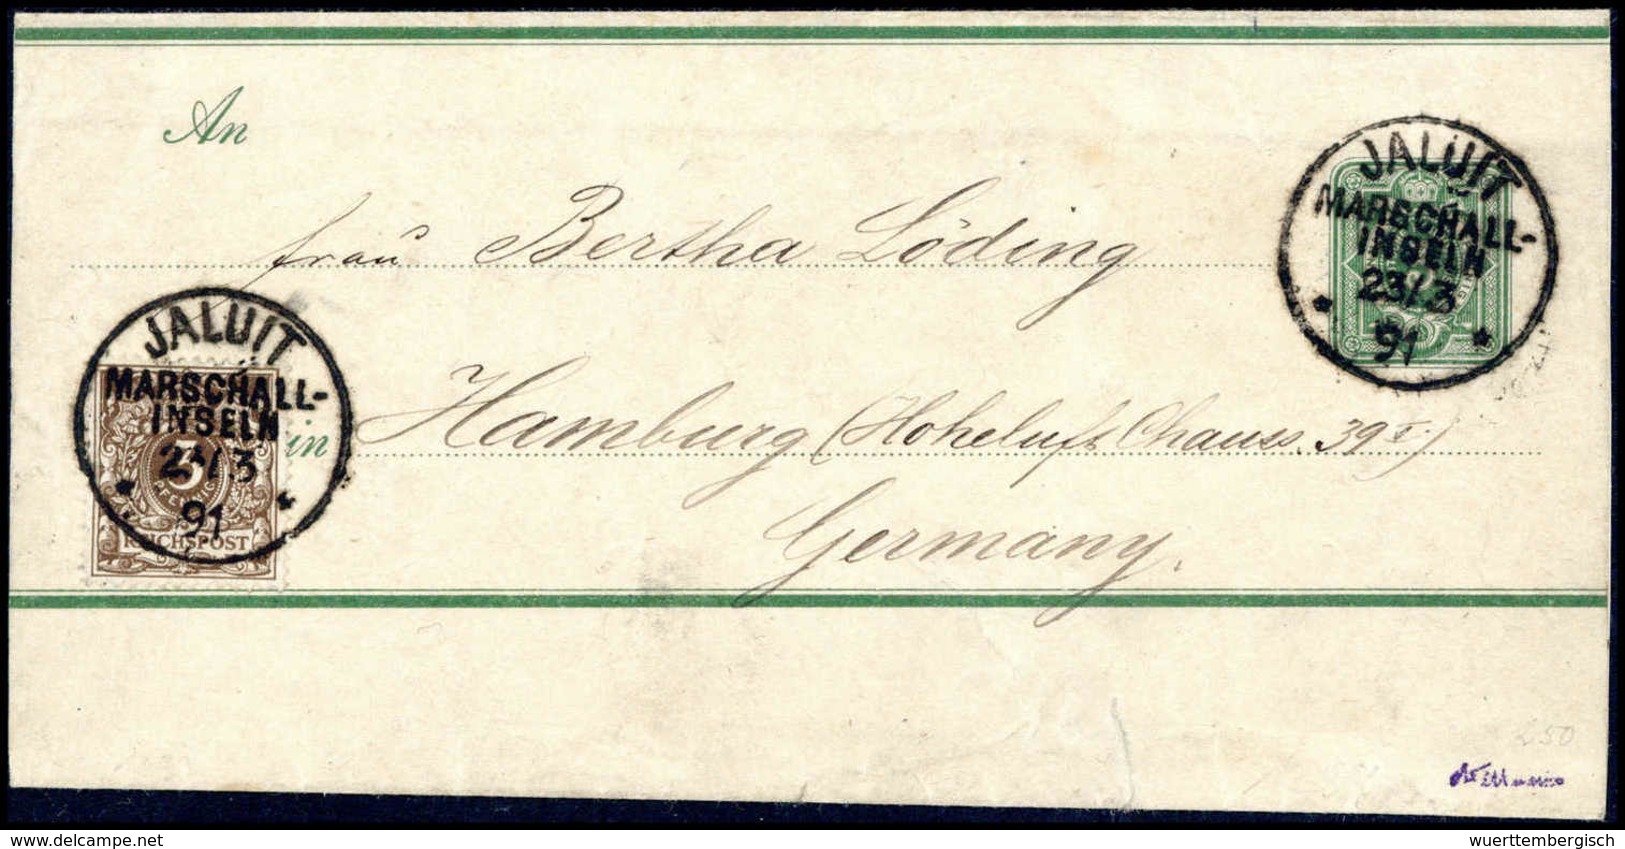 An
Frau Bertha Löding
in Hamburg (Hoheluft Chauss. 39 I)
Germany.
JALUIT
MARSCHALL-
INSELN
23/3
91
3
PFENNIG
REICHSPOST
JALUIT
MARSCHALL-
INSELN
23/3
91
250
delcampe.net
wuerttembergisch